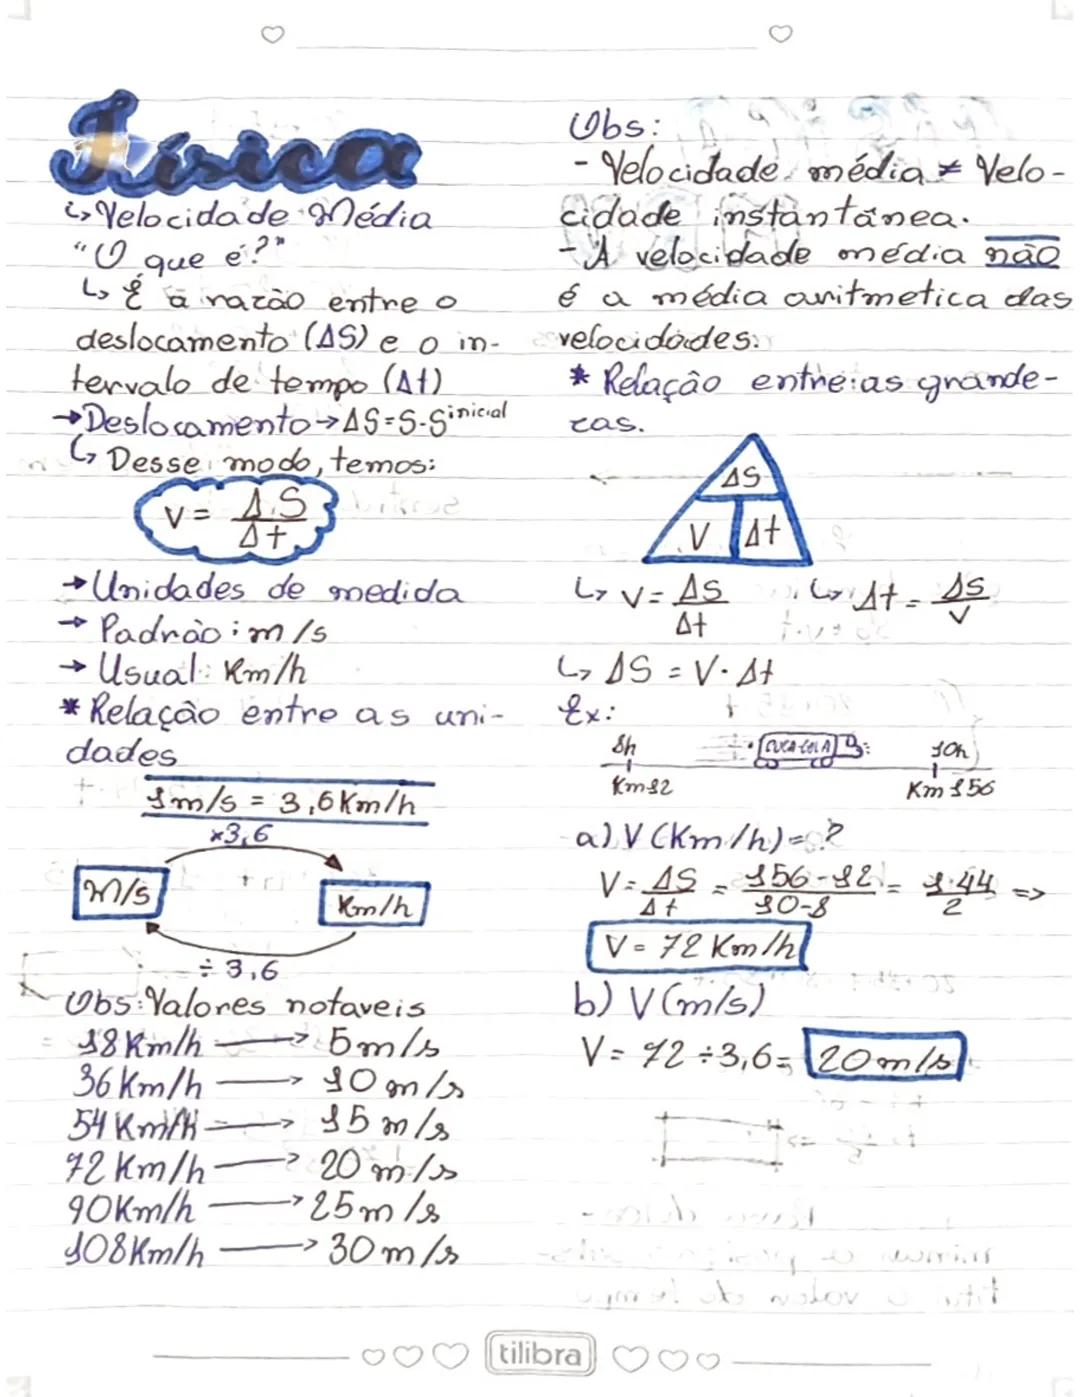 Física
↳ Velocidade Média
"O que é?"
↳ É a razão entre o
deslocamento (ΔS) e o in-
tervalo de tempo (Δt)
→ Deslocamento → ΔS = S - S inicial
↳ Desse modo, temos:
V = ΔS/Δt
→ Unidades de medida
→ Padrão: m/s
→ Usual: Km/h
* Relação entre as uni-
dades
1m/s = 3,6Km/h
×3,6
m/s
Km/h
÷3,6
Obs: Valores notaveis
18Km/h → 5m/s
36Km/h → 10m/s
54Km/h → 15m/s
72Km/h → 20m/s
90Km/h → 25m/s
108Km/h → 30m/s
Obs:
- Velocidade média ≠ Velo-
cidade instantânea.
- A velocidade média não
é a média aritmetica das
velocidades.
* Relação entre as grande-
zas.
ΔS
V Δt
↳ V = ΔS/Δt ↳ Δt = ΔS/V
↳ ΔS = V · Δt
Ex:
8h COCA-COLA 10h
Km12 Km 156
a) V (Km/h) = ?
V = ΔS/Δt = 156-12/10-8 = 144/2 =>
V = 72 Km/h
b) V (m/s)
V = 72 ÷ 3,6 = 20m/s
tilibra